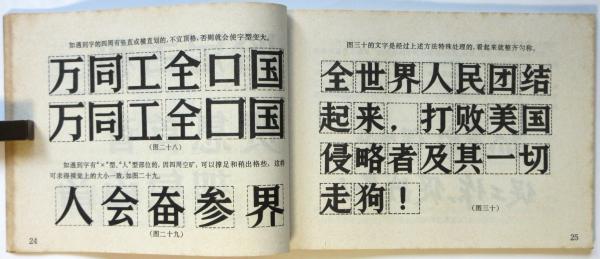 如遇到字的四周有竖直或横直划的，不宜顶格，否则就会使字型变大。
万同工全口国
万同工全口国
(图二十八)
如遇到字有“×”型、“人”型部位的，因四周空旷，可以撑足和稍出格些，这样
可求得视觉上的大小一致，如图二十九。
人会奋参界
(图二十九)
24
图三十的文字是经过上述方法特殊处理的，看起来就整齐匀称。
全世界人民团结
起来，打败美国
侵略者及其一切
走狗！
(图三十)
25